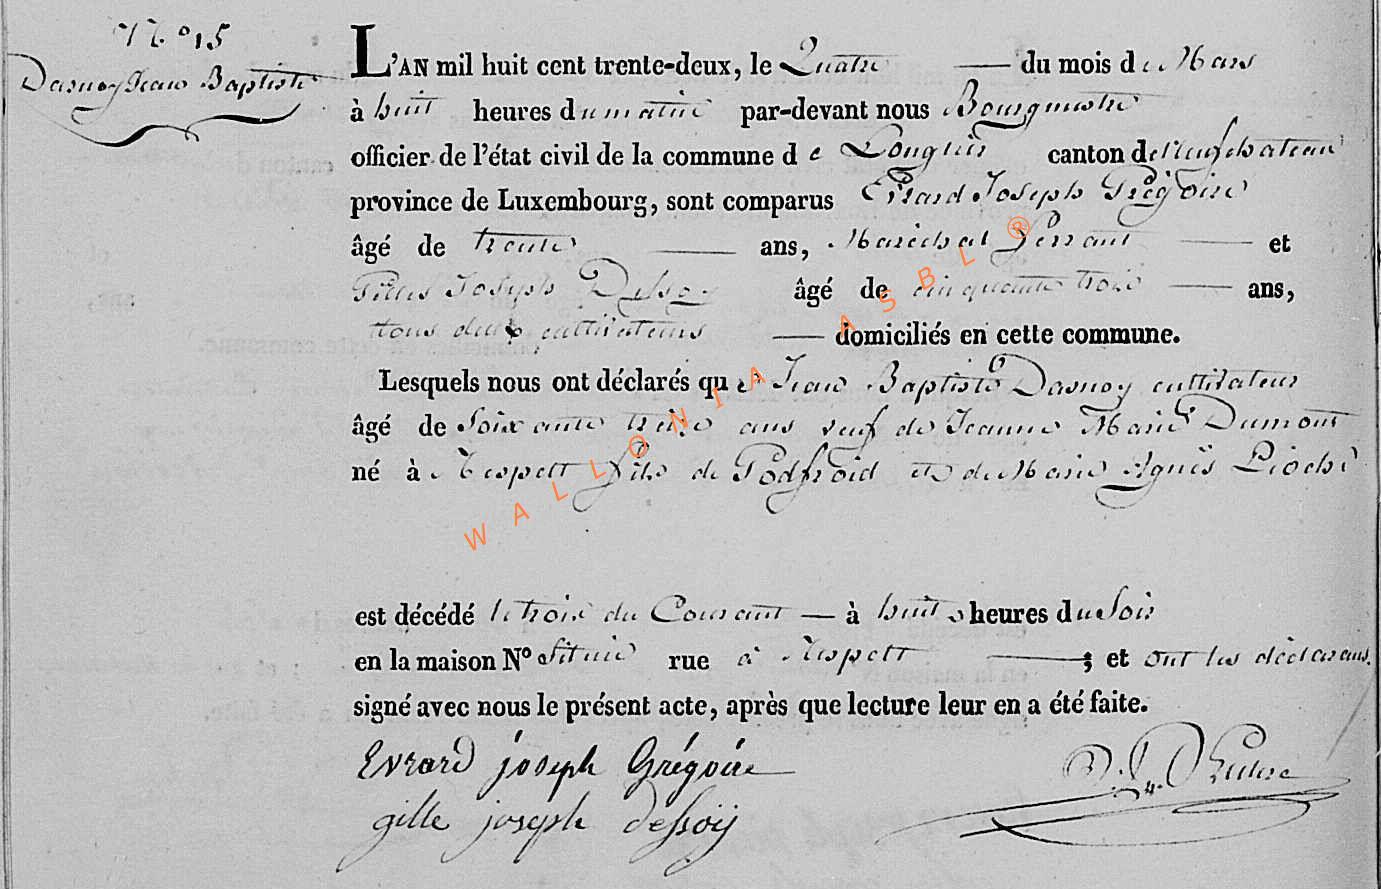 N.° 15
Dasnoy Jean Baptiste
L'AN mil huit cent trente-deux, le Quatre — du mois de Mars
à huit heures du matin par-devant nous Bourgmestre
officier de l'état civil de la commune de Longlier canton de Neufchateau
province de Luxembourg, sont comparus Evrard Joseph Grégoire
âgé de trente — ans, Maréchal ferrant — et
Gilles Joseph Dessoy âgé de cinquante trois — ans,
tous deux cultivateurs — domiciliés en cette commune.
Lesquels nous ont déclarés que Jean Baptiste Dasnoy cultivateur
âgé de Soixante treize ans veuf de Jeanne Marie Dumont
né à Respelt fils de Godfroid et de Marie Agnès Pioche
est décédé le trois du Courant — à huit heures du Soir
en la maison N° située rue à Respelt — ; et ont les déclarans
signé avec nous le présent acte, après que lecture leur en a été faite.
Evrard joseph Grégoire
gille joseph dessoij
WALLONIA ASBL ®